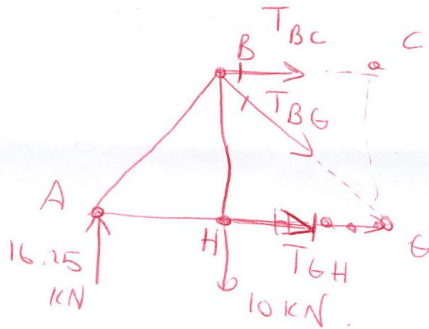 B
T BC
C
T BG
A
H
T GH
G
16.25
KN
10 KN